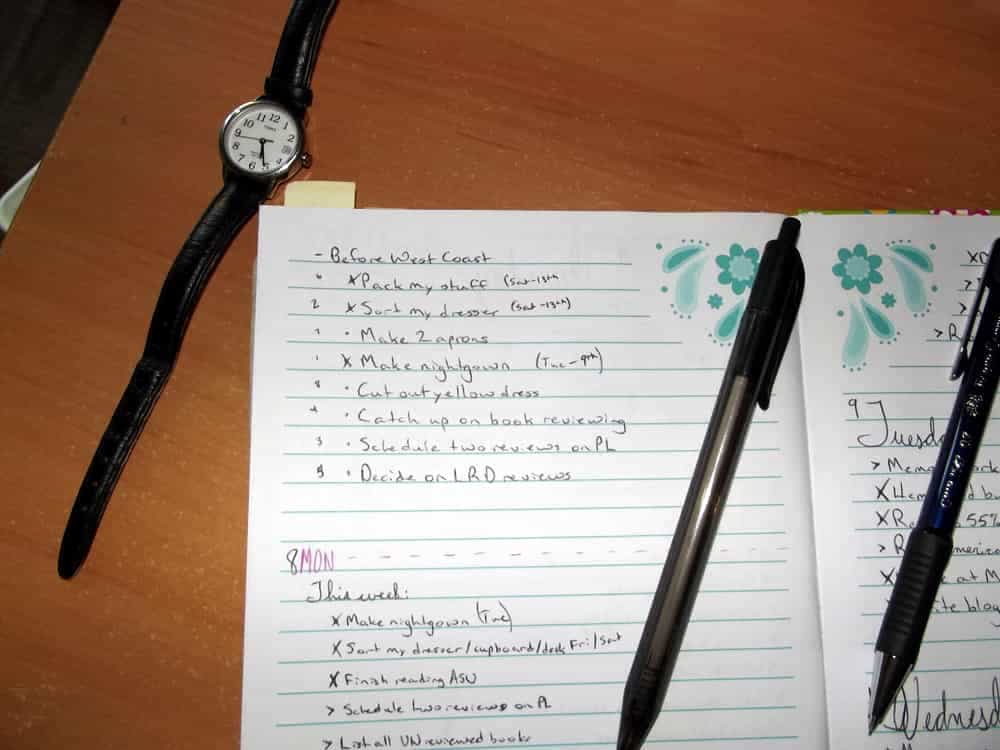 - Before West Coast
6 x Pack my stuff (Sat-13th)
2 x Sort my dresser (Sat-13th)
7 · Make 2 aprons
1 x Make nightgown (Tue - 9th)
8 · Cut out yellow dress
4 · Catch up on book reviewing
3 · Schedule two reviews on PL
5 · Decide on LRD reviews
8 MON
This week:
x Make nightgown (Tue)
x Sort my dresser/cupboard/desk Fri/Sat
x Finish reading ASU
> Schedule two reviews on PL
> List all UNreviewed books
9
> R
x
55%
at M
blog
Wednesd
TIMEX
11 12 1
10 2
9
8
7 6 5